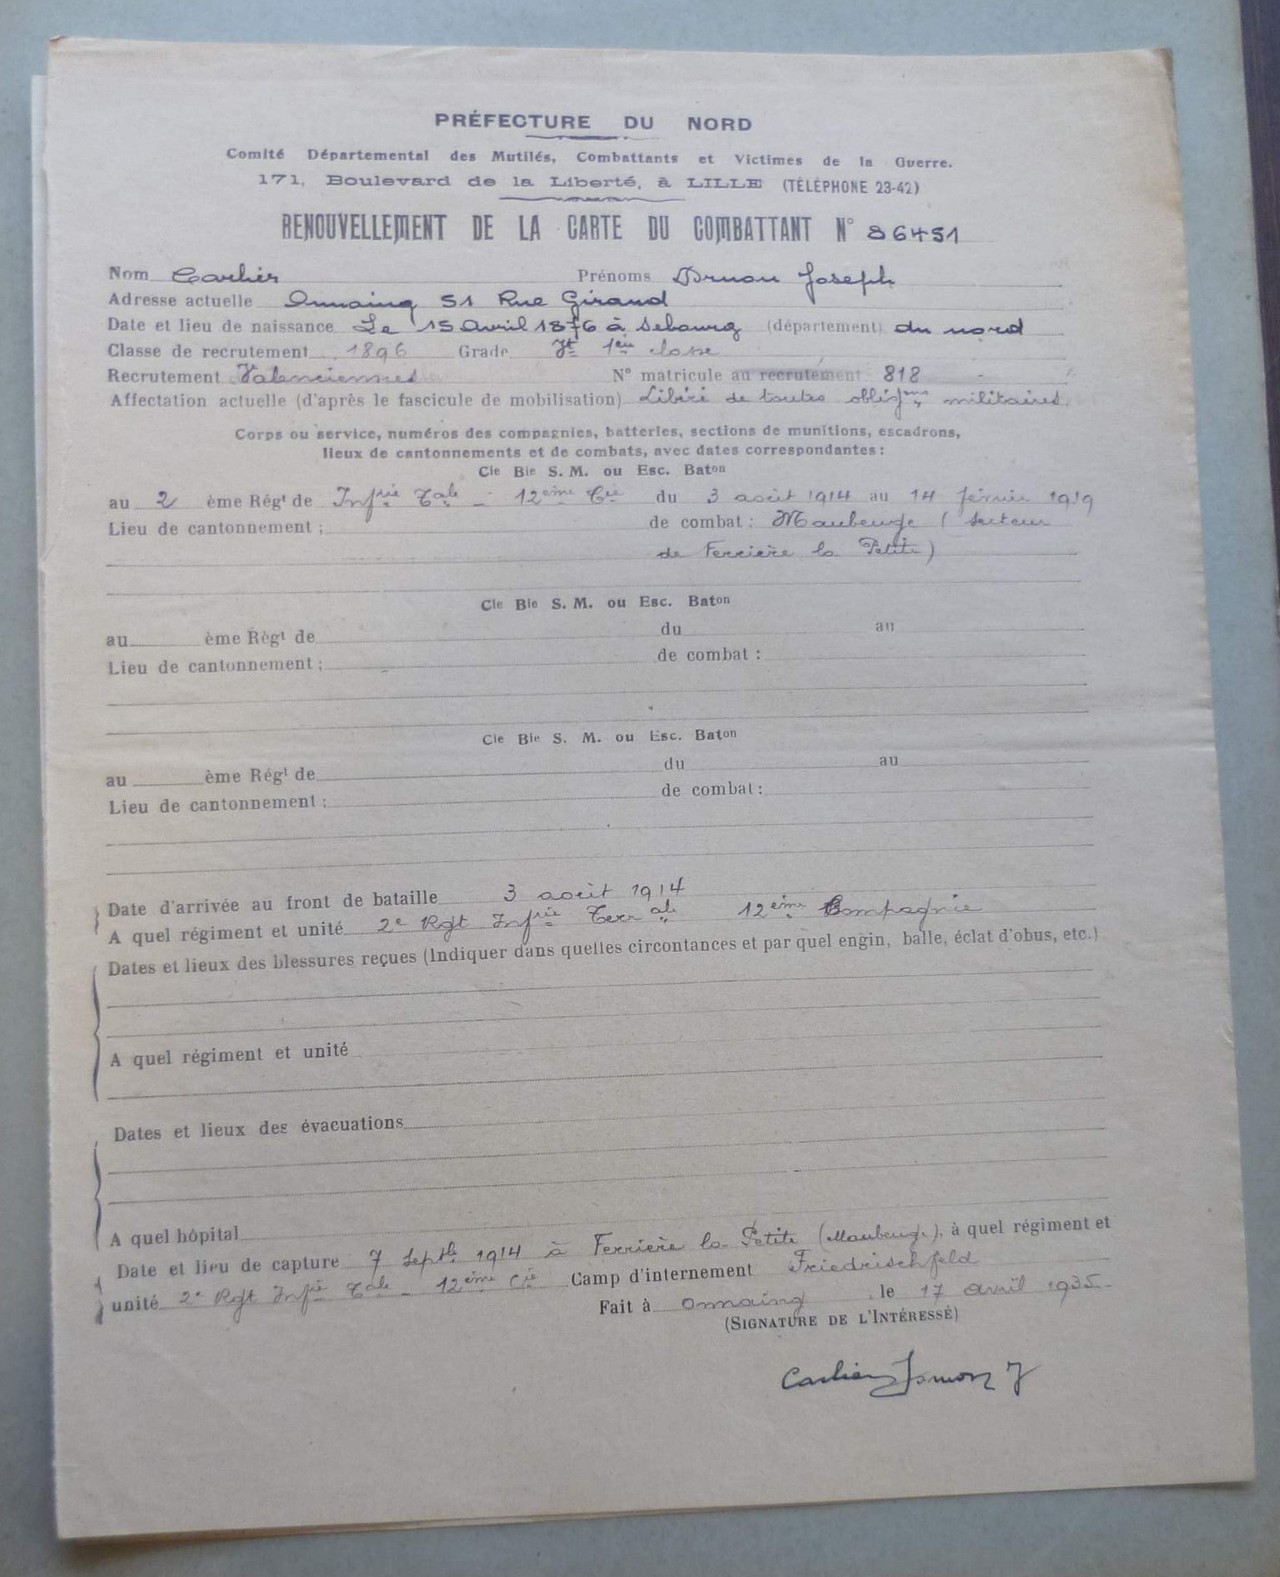 PRÉFECTURE DU NORD
Comité Départemental des Mutilés, Combattants et Victimes de la Guerre.
171, Boulevard de la Liberté, à LILLE (TÉLÉPHONE 23-42)
RENOUVELLEMENT DE LA CARTE DU COMBATTANT N° 86451
Nom Carlier Prénoms Druon Joseph
Adresse actuelle Onnaing 51 Rue Giraud
Date et lieu de naissance Le 15 Avril 1876 à Sebourg (département) du nord
Classe de recrutement 1896 Grade 1ère classe
Recrutement Valenciennes N° matricule au recrutement 818
Affectation actuelle (d'après le fascicule de mobilisation) Libéré de toutes oblig.ons militaires
Corps ou service, numéros des compagnies, batteries, sections de munitions, escadrons,
lieux de cantonnements et de combats, avec dates correspondantes :
Cie Bie S. M. ou Esc. Baton
au 2 ème Régt de Infrie Tale - 12ème Cie du 3 août 1914 au 14 février 1919
Lieu de cantonnement : de combat : Maubeuge (secteur
de Ferrière la Petite)
Cie Bie S. M. ou Esc. Baton
au ème Règt de du au
Lieu de cantonnement : de combat :
Cie Bie S. M. ou Esc. Baton
au ème Régt de du au
Lieu de cantonnement : de combat :
Date d'arrivée au front de bataille 3 août 1914
A quel régiment et unité 2e Rgt Infrie Terrale 12ème Compagnie
Dates et lieux des blessures reçues (Indiquer dans quelles circontances et par quel engin, balle, éclat d'obus, etc.)
A quel régiment et unité
Dates et lieux des évacuations
A quel hôpital
Date et lieu de capture 7 Septbre 1914 à Ferrière la Petite (Maubeuge), à quel régiment et
unité 2e Rgt Infrie Tale - 12ème Cie Camp d'internement Friedrischfeld
Fait à Onnaing, le 17 avril 1935
(SIGNATURE DE L'INTÉRESSÉ)
Carlier Druon J